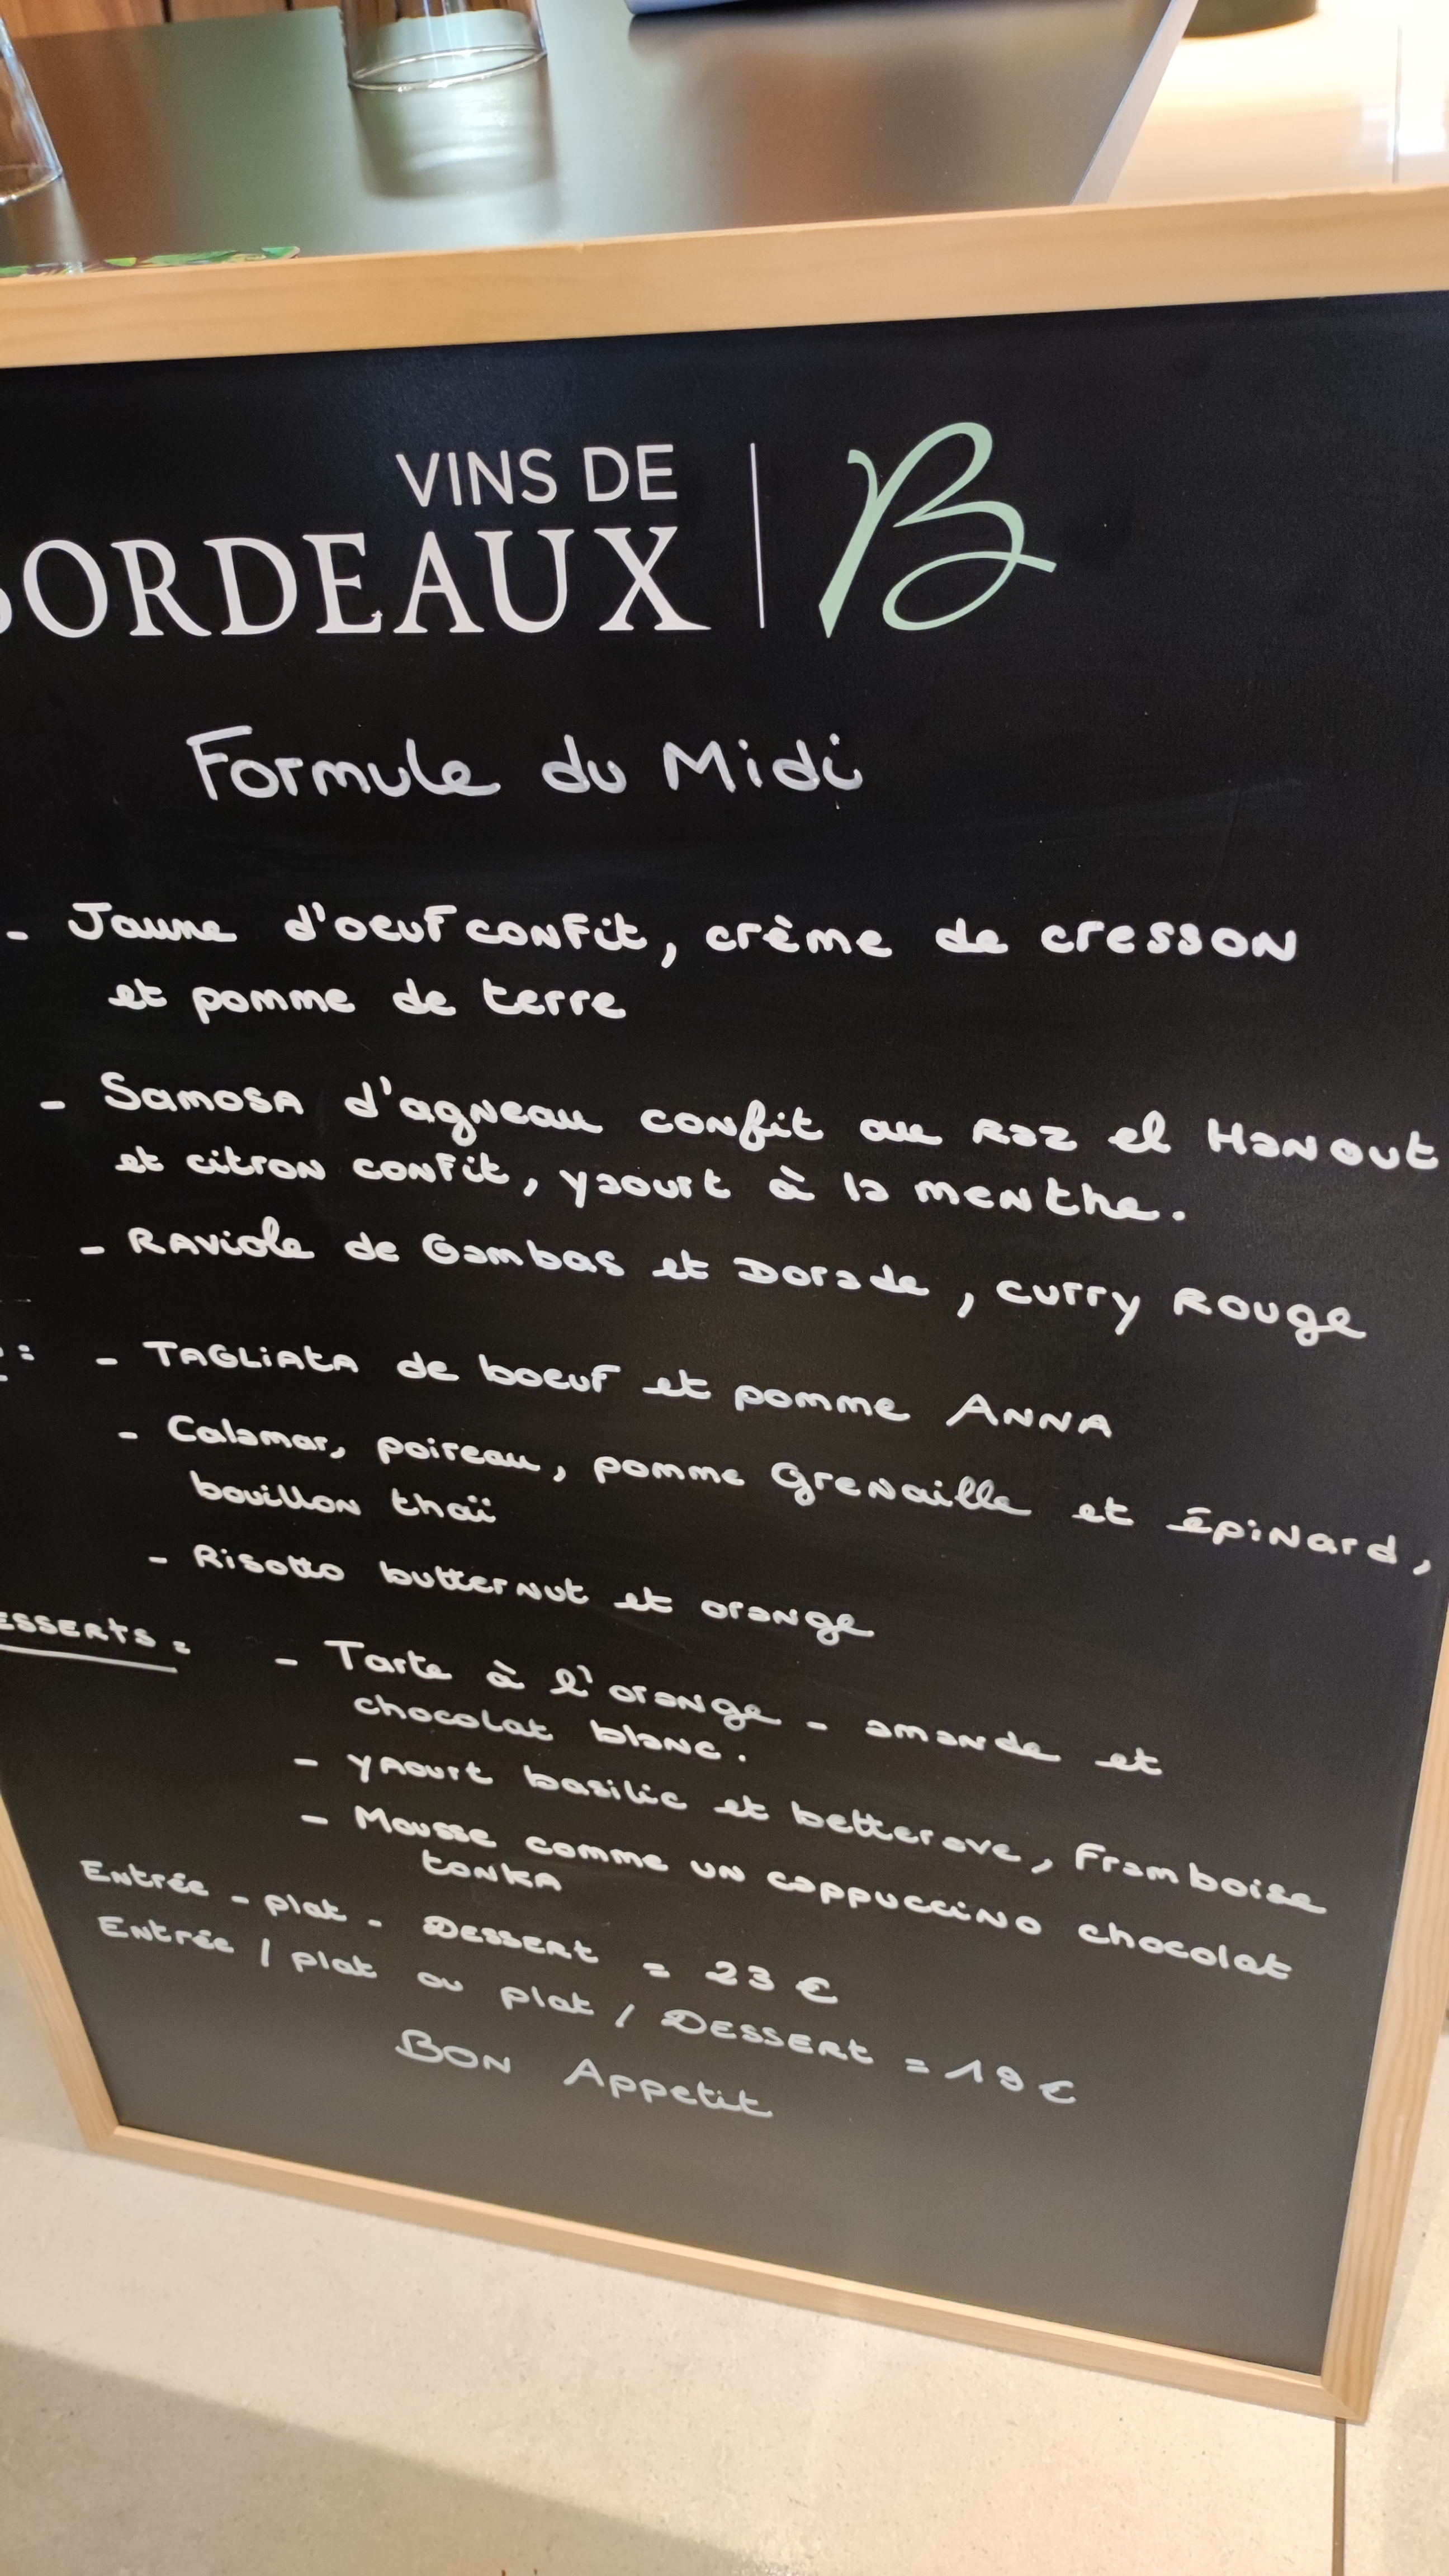 VINS DE
BORDEAUX | B
Formule du Midi
- Jaune d'oeuf confit, crème de cresson
et pomme de terre
- Samosa d'agneau confit au Raz el Hanout
et citron confit, yaourt à la menthe.
- Raviole de Gambas et Dorade, curry Rouge
: - TAGLIATA de boeuf et pomme ANNA
- Calamar, poireau, pomme Grenaille et épinard,
bouillon thaï
- Risotto butternut et orange
ESSERTS: - Tarte à l'orange - amande et
chocolat blanc.
- yaourt basilic et betterave, Framboise
- Mousse comme un cappuccino chocolat
tonka
Entrée - plat - DESSERT = 23 €
Entrée / plat ou plat / DESSERT = 19 €
BON Appetit